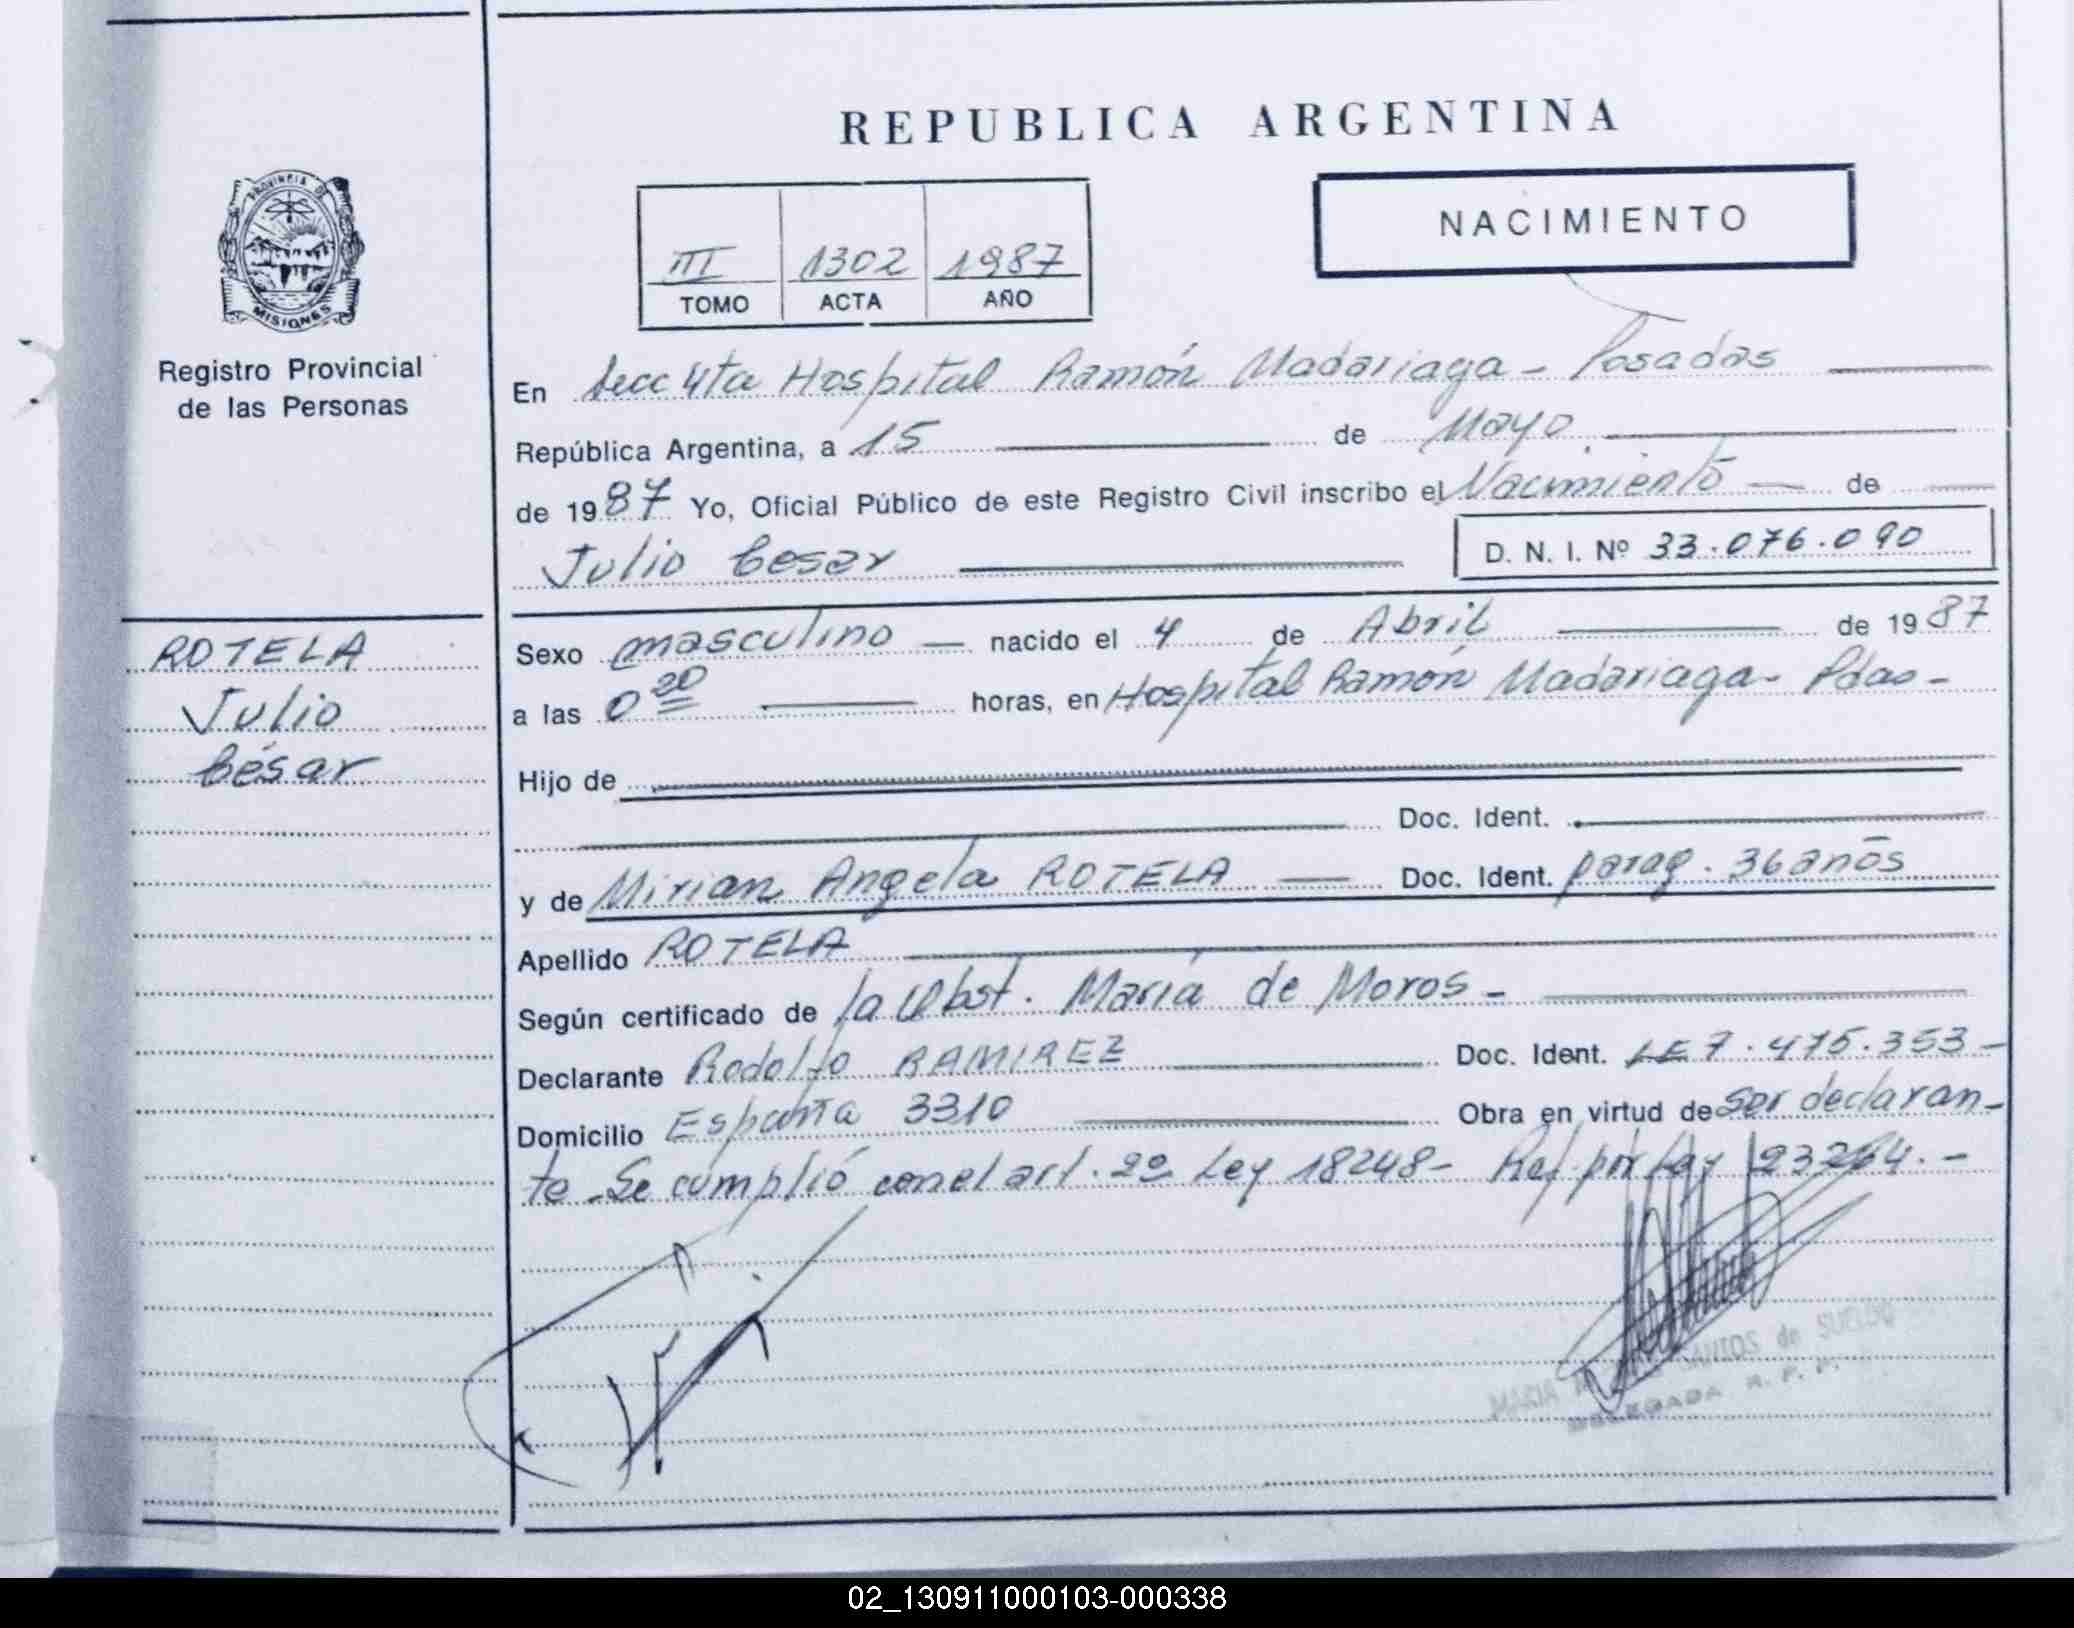 REPUBLICA ARGENTINA
NACIMIENTO
III 1302 1987
TOMO ACTA AÑO
PROVINCIA DE
MISIONES
Registro Provincial
de las Personas
En Secc 4ta Hospital Ramón Madariaga - Posadas
República Argentina, a 15 de Mayo
de 1987 Yo, Oficial Público de este Registro Civil inscribo el Nacimiento de
Julio Cesar
D. N. I. Nº 33.076.090
ROTELA
Julio
César
Sexo masculino nacido el 4 de Abril de 1987
a las 0 20 horas, en Hospital Ramón Madariaga - Pdas -
Hijo de
Doc. Ident.
y de Mirian Angela ROTELA Doc. Ident. parag. 36 años
Apellido ROTELA
Según certificado de la Obst. María de Moros -
Declarante Rodolfo RAMIREZ Doc. Ident. LE 7.475.353 -
Domicilio España 3310 Obra en virtud de ser declaran-
te - Se cumplió con el art. 2º Ley 18248 - Ref. por Ley 23264. -
MARIA SANTOS de SUELDO
DELEGADA R. P. P.
02_130911000103-000338